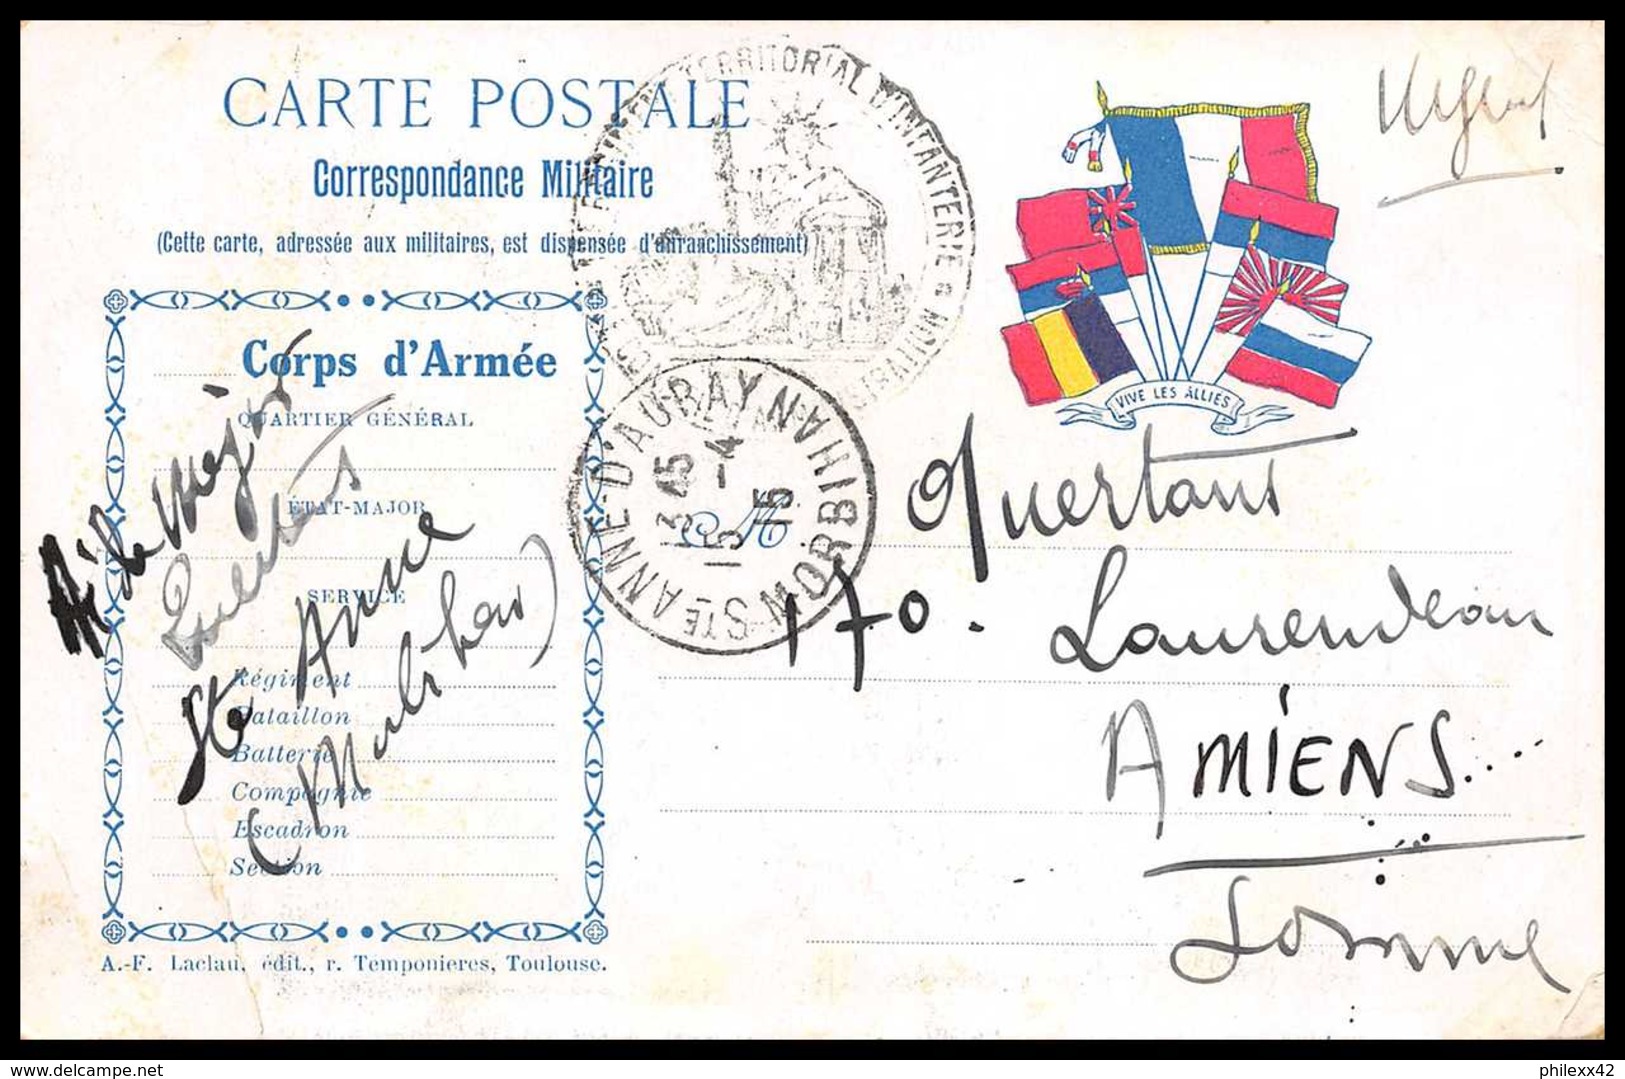 CARTE POSTALE
Correspondance Militaire
(Cette carte, adressée aux militaires, est dispensée d'affranchissement)
TERRITORIAL D'INFANTERIE
VIVE LES ALLIÉS
Corps d'Armée
QUARTIER GÉNÉRAL
ÉTAT-MAJOR
SERVICE
Régiment
Bataillon
Batterie
Compagnie
Escadron
Section
Ste Anne
(Morbihan)
STE ANNE-D'AURAY MORBIHAN
3 45
15 -4
15
M
Quertant
170. Laurendeau
AMIENS...
Somme
A.-F. Laclau, édit., r. Temponieres, Toulouse.
delcampe.net
philexx42